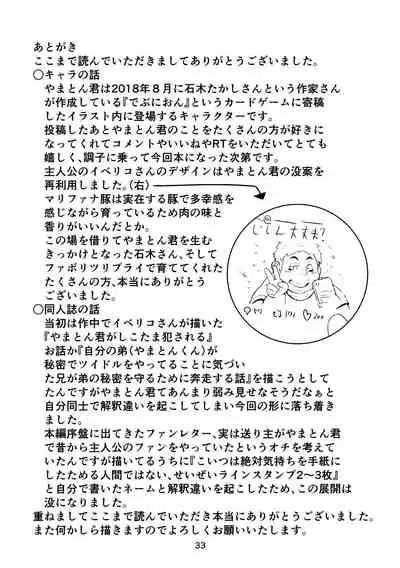 あとがき
ここまで読んでいただきましてありがとうございました。
〇キャラの話
やまとん君は2018年8月に石木たかしさんという作家さん
が作成している『でぶにおん』というカードゲームに寄稿
したイラスト内に登場するキャラクターです。
投稿したあとやまとん君のことをたくさんの方が好きに
なってくれてコメントやいいねやRTをいただいてとても
嬉しく、調子に乗って今回本になった次第です。
主人公のイベリコさんのデザインはやまとん君の没案を
再利用しました。(右)
マリファナ豚は実在する豚で多幸感を
感じながら育っているため肉の味と
香りがいいんだとか。
この場を借りてやまとん君を生む
きっかけとなった石木さん、そして
ファボリツリプライで育ててくれた
たくさんの方、本当にありがとう
ございました。
〇同人誌の話
当初は作中でイベリコさんが描いた
『やまとん君がしこたま犯される』
お話か『自分の弟(やまとんくん)が
秘密でツイドルをやってることに気づい
た兄が弟の秘密を守るために奔走する話』を描こうとして
たんですがやまとん君てあんまり弱み見せなそうだなぁと
自分同士で解釈違いを起こしてしまい今回の形に落ち着き
ました。
本編序盤に出てきたファンレター、実は送り主がやまとん君
で昔から主人公のファンをやっていたというオチを考えて
いたんですが描いてるうちに『こいつは絶対気持ちを手紙に
したためる人間ではない、せいぜいラインスタンプ2〜3枚』
と自分で書いたネームと解釈違いを起こしたため、この展開は
没になりました。
重ねましてここまで読んでいただき本当にありがとうございました。
また何かしら描きますのでよろしくお願いいたします。
33